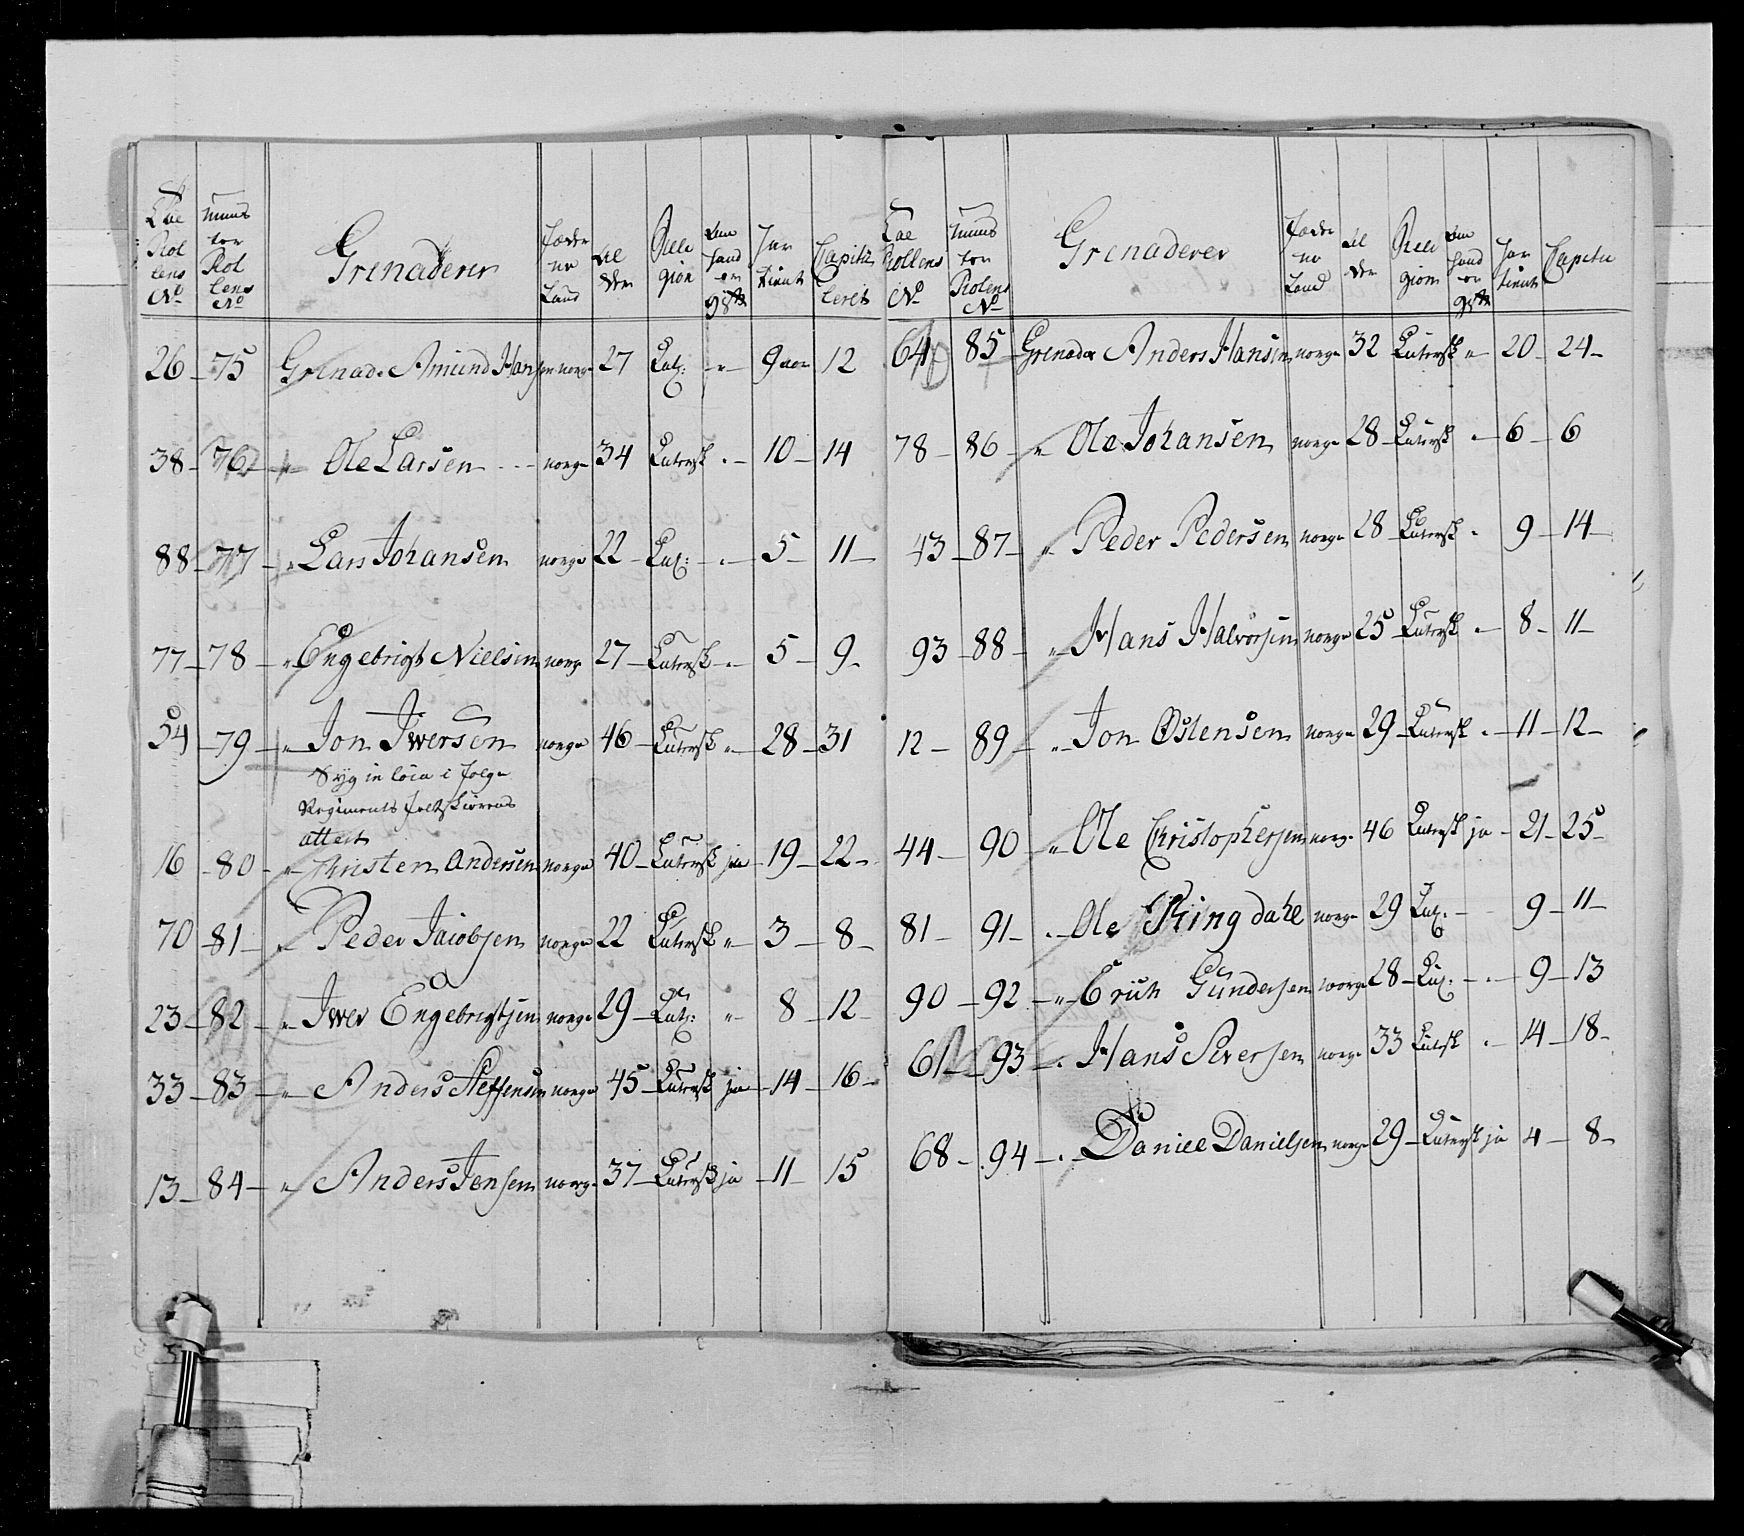 Rol
lens
No
Num̅
ter
Rol
lens
No
Grenaderer
Fæder
ne
Land
Al
der
Reli
gion
Om
hand
er
gift
Har
tient
Capitu
leret
26 - 75 Grenad: Amund Hansen norge 27 Lut: - " - 9 aar 12
38 - 76 - " Ole Larsen - - - norge 34 Lutersk " - 10 - 14
88 - 77 - " Lars Johansen norge 22 - Lut: - " - 5 - 11 -
77 - 78 - " Engebrigt Nielsen norge 27 - Lutersk - " 5 - 9 -
54 - 79 - " Jon Iwersen norge 46 - Lutersk " - 28 - 31
Syg in loca i følge
Regiments feltskierens
attest
16 - 80 - " Christen Andersen norge 40 - Lutersk ja - 19 - 22 -
70 - 81 - " Peder Jacobsen norge 22 Lutersk " - 3 - 8 -
23 - 82 - " Iwer Engebrigtsen norge 29 - Lut: " 8 - 12 -
33 - 83 - " Anders Steffensen norge 45 - Lutersk ja - 14 - 16 -
13 - 84 - " Anders Jensen norge 37 - Lutersk ja - 11 - 15
Rollens
No
Num̅
ter
Rolens
No
Grenaderer
Fæder
ne
Land
Al
der
Reli
gion
Om
hand
er
gift
Har
tient
Capitu
64 85 - Grenader Anders Hansen norge 32 Lutersk " - 20 - 24 -
78 - 86 - " Ole Johansen norge 28 - Lutersk " - 6 - 6
43 - 87 - " Peder Pedersen norge 28 Lutersk " 9 - 14 -
93 - 88 - " Hans Halvorsen norge 25 - Lutersk " - 8 - 11 -
12 - 89 - " Jon Østensen norge 29 - Lutersk " - 11 - 12 -
44 - 90 - " Ole Christophersen norge 46 Lutersk ja - 21 - 25 -
81 - 91 - " Ole Ringdahl norge 29 Lut: - 9 - 11 -
90 - 92 - " Erich Gundersen norge 28 - Lut: - " - 9 - 13
61 - 93 - " Hans Siversen norge 33 Lutersk " - 14 - 18 -
68 - 94 - " Daniel Danielsen norge 29 - Lutersk ja 4 - 8 -